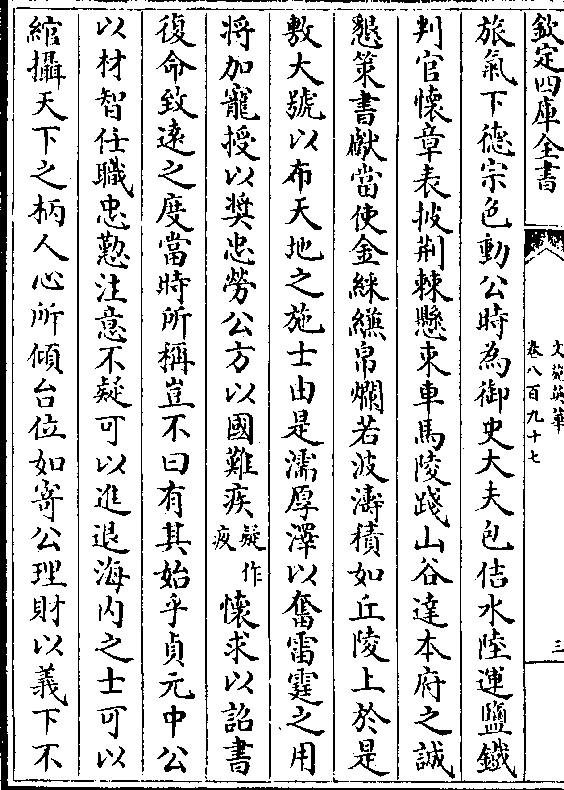 欽定四庫全書
文苑英華
卷八百九十七
三
旅氣下德宗色動公時為御史大夫包佶水陸運鹽鐵
判官懷章表披荆棘懸束車馬陵踐山谷達本府之誠
懇策書獻當使金綵纁帛爛若波濤積如丘陵上於是
敷大號以布天地之施士由是濡厚澤以奮雷霆之用
將加寵授以奬忠勞公方以國難疾疑作疚懷求以詔書
復命致遠之度當時所稱豈不曰有其始乎貞元中公
以材智任職忠懃注意不疑可以進退海内之士可以
綰攝天下之柄人心所傾台位如寄公理財以義下不